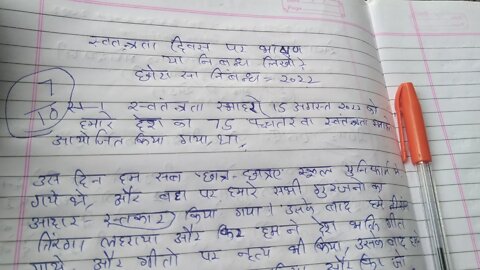 स्वतन्त्रता दिवस पर भाषण
या निबन्ध लिखो?
छोटा सा निबंन्ध = 2022
7
10
स्वंतन्त्रता समारोह 15 अगस्त 2022 को
हमारे देश का 75 पच्चतरवा स्वंतन्त्रता
आयोजित किया गया, था,
उस दिन हम सब छात्र-छात्राए स्कूल युनिफार्म मे
गये थे, और वहा पर हमारे सभी गुरुजनो का
आदार- सत्कार किया गया। उसके बाद हमे
तिरंगा लहराया और फिर हमने देश भक्ति गीत
गाये, और गीतो पर नृत्य भी किया, उसके बाद
किया और फिर जो